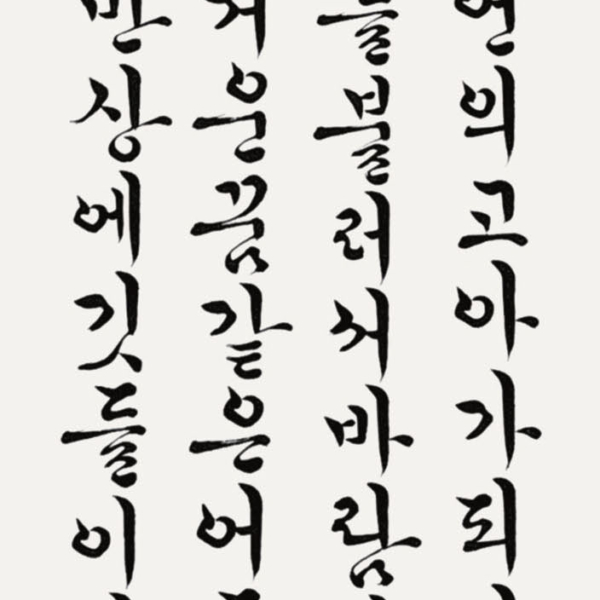 연의고아가되
불러서바람
운꿈같은어
반상에깃들이